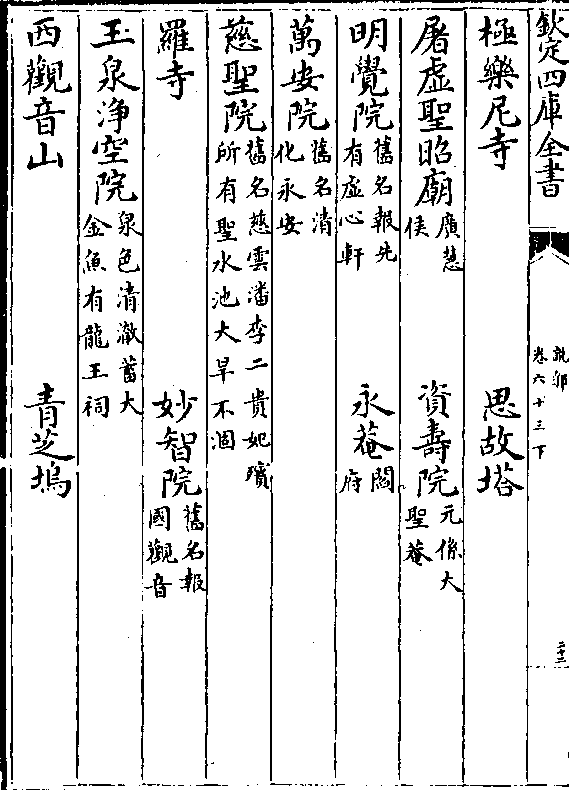 欽定四庫全書
說郛
卷六十三下
二十二
極樂尼寺 思故塔
屠虛聖昭廟 廣慧侯 資壽院 元係大聖菴
明覺院 舊名報先有虛心軒 永菴 閻府
萬安院 舊名清化永安
慈聖院 舊名慈雲潘李二貴妃殯所有聖水池大旱不涸
羅寺 妙智院 舊名報國觀音
玉泉淨空院 泉色清澈蓄大金魚有龍王祠
西觀音山 青芝塢